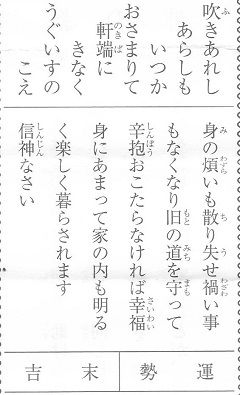 吹きあれし
あらしも
いつか
おさまりて
軒端に
きなく
うぐいすの
こえ
身の煩いも散り失せ禍い事
もなくなり旧の道を守って
辛抱おこたらなければ幸福
身にあまって家の内も明る
く楽しく暮らされます
信神なさい
運勢末吉